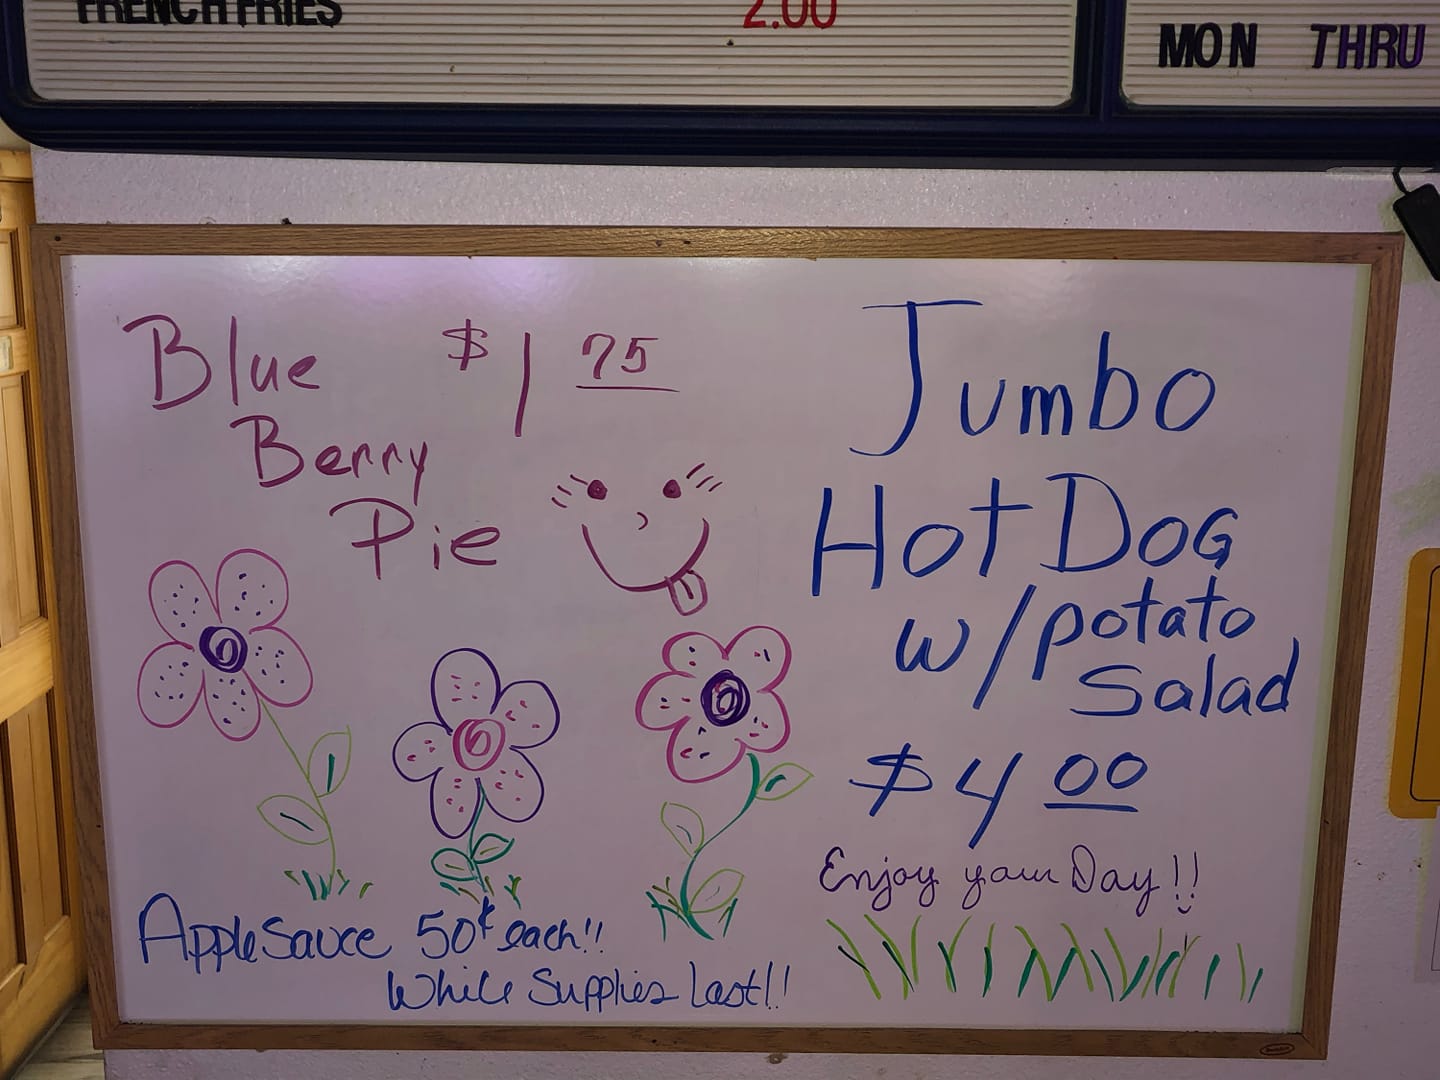 FRENCH FRIES 2.00
MON THRU
Blue $1 75
Berry
Pie
Jumbo
Hot Dog
w/potato
Salad
$4 00
Enjoy your Day!!
Applesauce 50¢ each!!
While Supplies Last!!